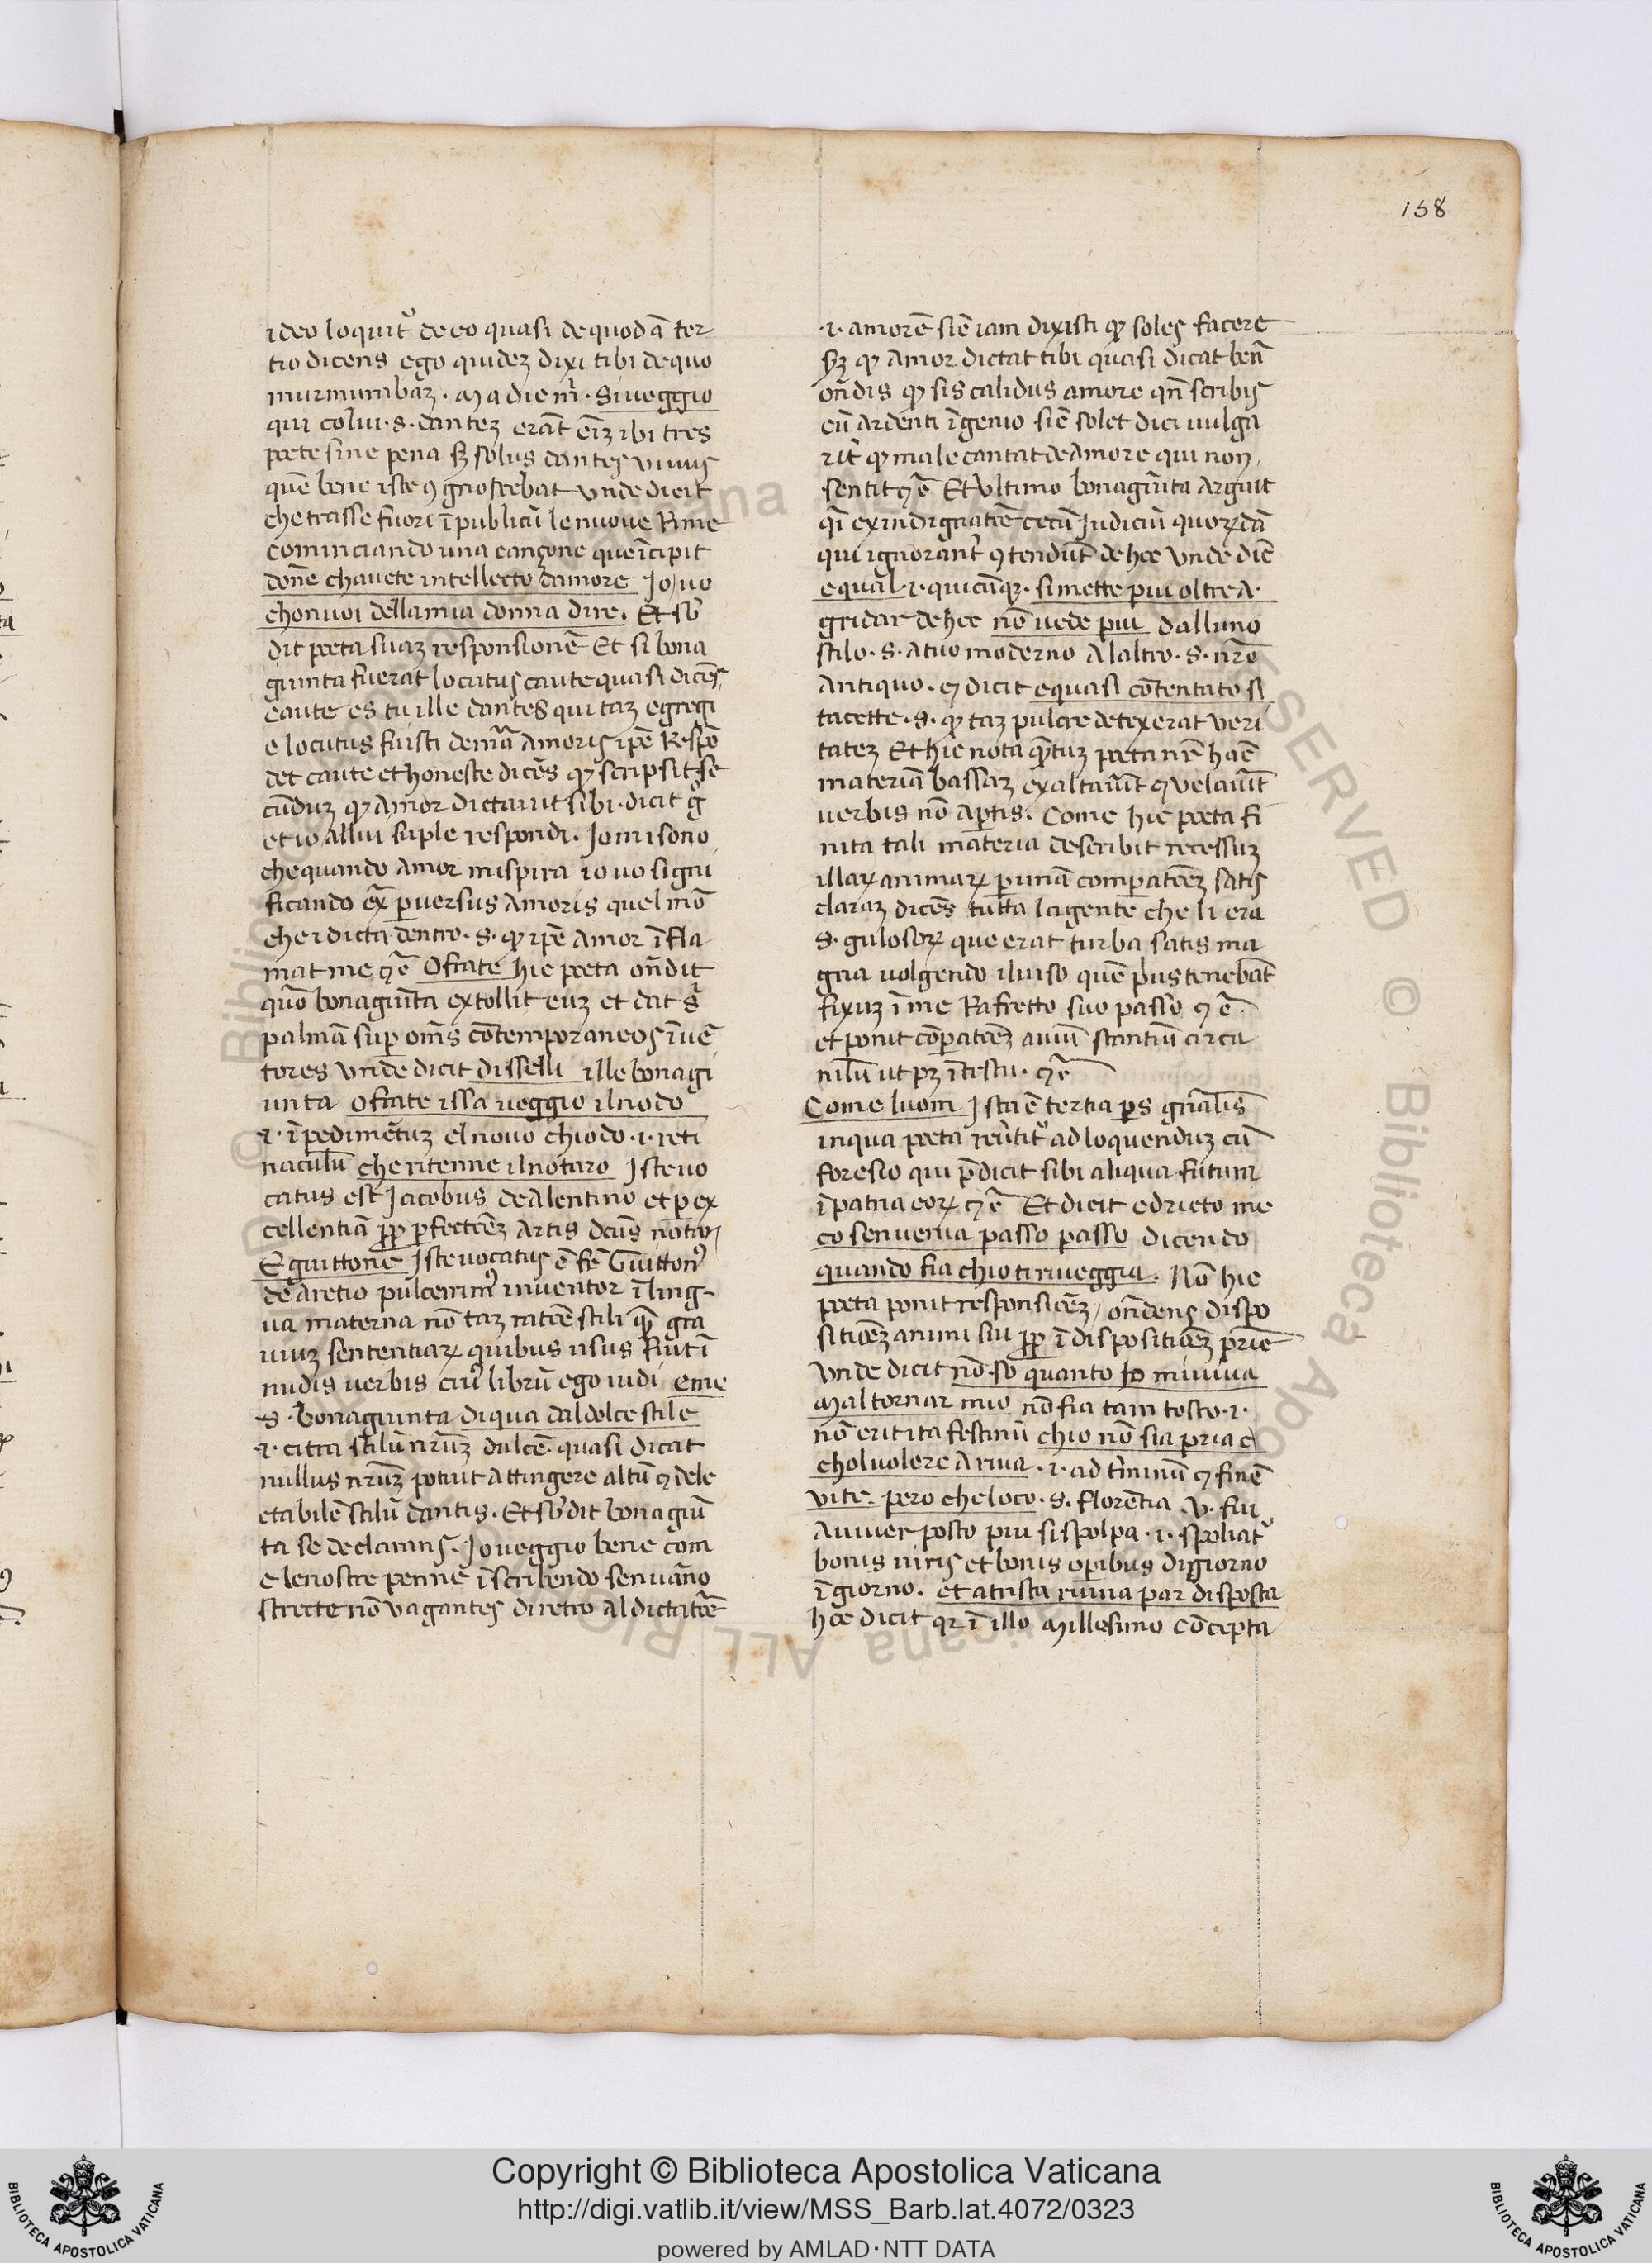 158
ideo loquit᷑ de eo quasi de quodā ter
tio dicens ego quidez dixi tibi de quo
murmurabaz. Ma di e m̄. si ueggio
qui colui .s. dantez erāt eīz ibi tres
poete sine pena sz solus dantes uiuus
quē bene iste ꝯgnoscebat unde dicit
che trasse fuori ī publicū le nuoue Rime
cominciando una cançone que īcipit
dōne chauete intellecto damore Io uo
chon uoi della mia donna dire. Et sb̄
dit poeta suaz responsionē Et si bona
giunta fuerat locutus caute quasi dicēs
caute es tu ille dantes qui taz egregi
e locutus fuisti de mr̄a amoris ipē Respō
det caute et honeste dicēs ꝙ scripsit se
cūduz ꝙ Amor dictauit sibi. dicit g̊
et io allui suple respondi. Io mi sono
che quando Amor mispira io uo signi
ficando ex̄ ꝑ uersus Amoris quel mō
che i dicta dentro .s. ꝙ ipē Amor īfla
mat me ⁊c̄ O frate hic poeta ōn̄dit
quō bonagiūta extollit euz et dat s̄
palmā suꝑ oms̄ cōtemporaneos īuē
tores unde dicit dissel li ille bonagi
unta O frate issa ueggio il nodo
.i. īpedimētuz el nouo chiodo .i. reti
naculū che ritenne il notaro Iste uo
catus est Iacobus de Alentino et ꝑ ex
cellentiā ꝓꝑ ꝑfectiōez artis dcūs notar
E guittone Iste uocatus ē fr̄ Guitton᷒
de aretio pulcerrim᷒ inuentor ī ling-
ua materna nō taz ratiōe stili qᷓ gra
uiuz sententiaꝝ quibus usus fuit ī
nudis uerbis cui᷒ librū ego uidi e me
.s. bonagiunta di qua dal dolce stile
.i. citra stilū nr̄uz dulcē. quasi dicat
nullus nr̄uz potuit attingere altū ⁊ dele
ctabilē stilū dantis. Et sb̄dit bonagiū
ta se declarans. Io ueggio bene com
e le nostre penne ī scribendo senuāno
strecte nō uagantes di retro al dictatōe
.i. amorē sic̄ iam dixisti ꝙ soles facere
sz ꝙ Amor dictat tibi quasi dicat ben̄
ōn̄dis ꝙ sis calidus amore qn̄ scribis
cū ardenti īgenio sic̄ solet dici uulga
rit᷑ ꝙ male cantat de Amore qui non
sentit ⁊c̄ Et ultimo bonagiūta arguit
qī ex indignatiōe cecū Iudiciū quoꝝdā
qui ignorant᷑ ꝯtendūt de hoc unde dic̄
e qual .i. quicūqꝫ. si mette piu oltre A.
gridar de hoc nō uede piu dalluno
stilo .s. a tuo moderno Alaltro .s. nr̄o
antiquo. ⁊ dicit e quasi cōtentato si
tacette .s. ꝙ taz pulcre detexerat ueri
tatez Et hic nota qᷓtuz poeta nr̄ hāc
materiā bassaz exaltauit ⁊ uelauit
uerbis nō aꝑtis. Come hic poeta fi
nita tali materia describit recessuz
illaꝝ animaꝝ ꝑ unā comꝑatiōez satis
claraz dicēs tutta la gente che li era
.s. gulosoꝝ que erat turba satis ma
gna uolgendo il uiso quē prius tenebāt
fixuz ī me Rafretto suo passo ⁊c̄.
et ponit cōꝑatiōez auiū stantiū circa
nilū ut pz ī testu. ⁊c̄
Come luom Ista ē tertia ꝑs gn̄alis
in qua poeta reūtit᷑ ad loquenduz cū
foresio qui p̄dicit sibi aliqua futura
ī patria eoꝝ ⁊c̄ Et dicit e drieto me
co senuenia passo passo dicendo
quando fia chio ti riueggia. Nō hic
poeta ponit responsiōez, ōn̄dens dispo
sitiōez animi sui ꝓꝑ īdispositiōez pr̄ie
unde dicit nō so quanto Io mi uiua
Mal tornar mio nō fia tam tosto .i.
nō erit ita festinū chio nō sia pria c̄
chol uolere a riua .i. ad t̄minū ⁊ finē
uite. pero che loco .s. florētia .u. fui
a uiuer posto piu si spolpa .i. spoliat᷑
bonis uiris et bonis oꝑibus di giorno
ī giorno. et a trista ruina par disposta
hoc dicit qꝛ ī illo Millesimo Cōcepta
Copyright © Biblioteca Apostolica Vaticana
http://digi.vatlib.it/view/MSS_Barb.lat.4072/0323
powered by AMLAD·NTT DATA